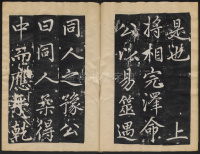 是也 上
將相宛澤命
公以易筮遇
同人之豫公
曰同人樂得
中而應於乾